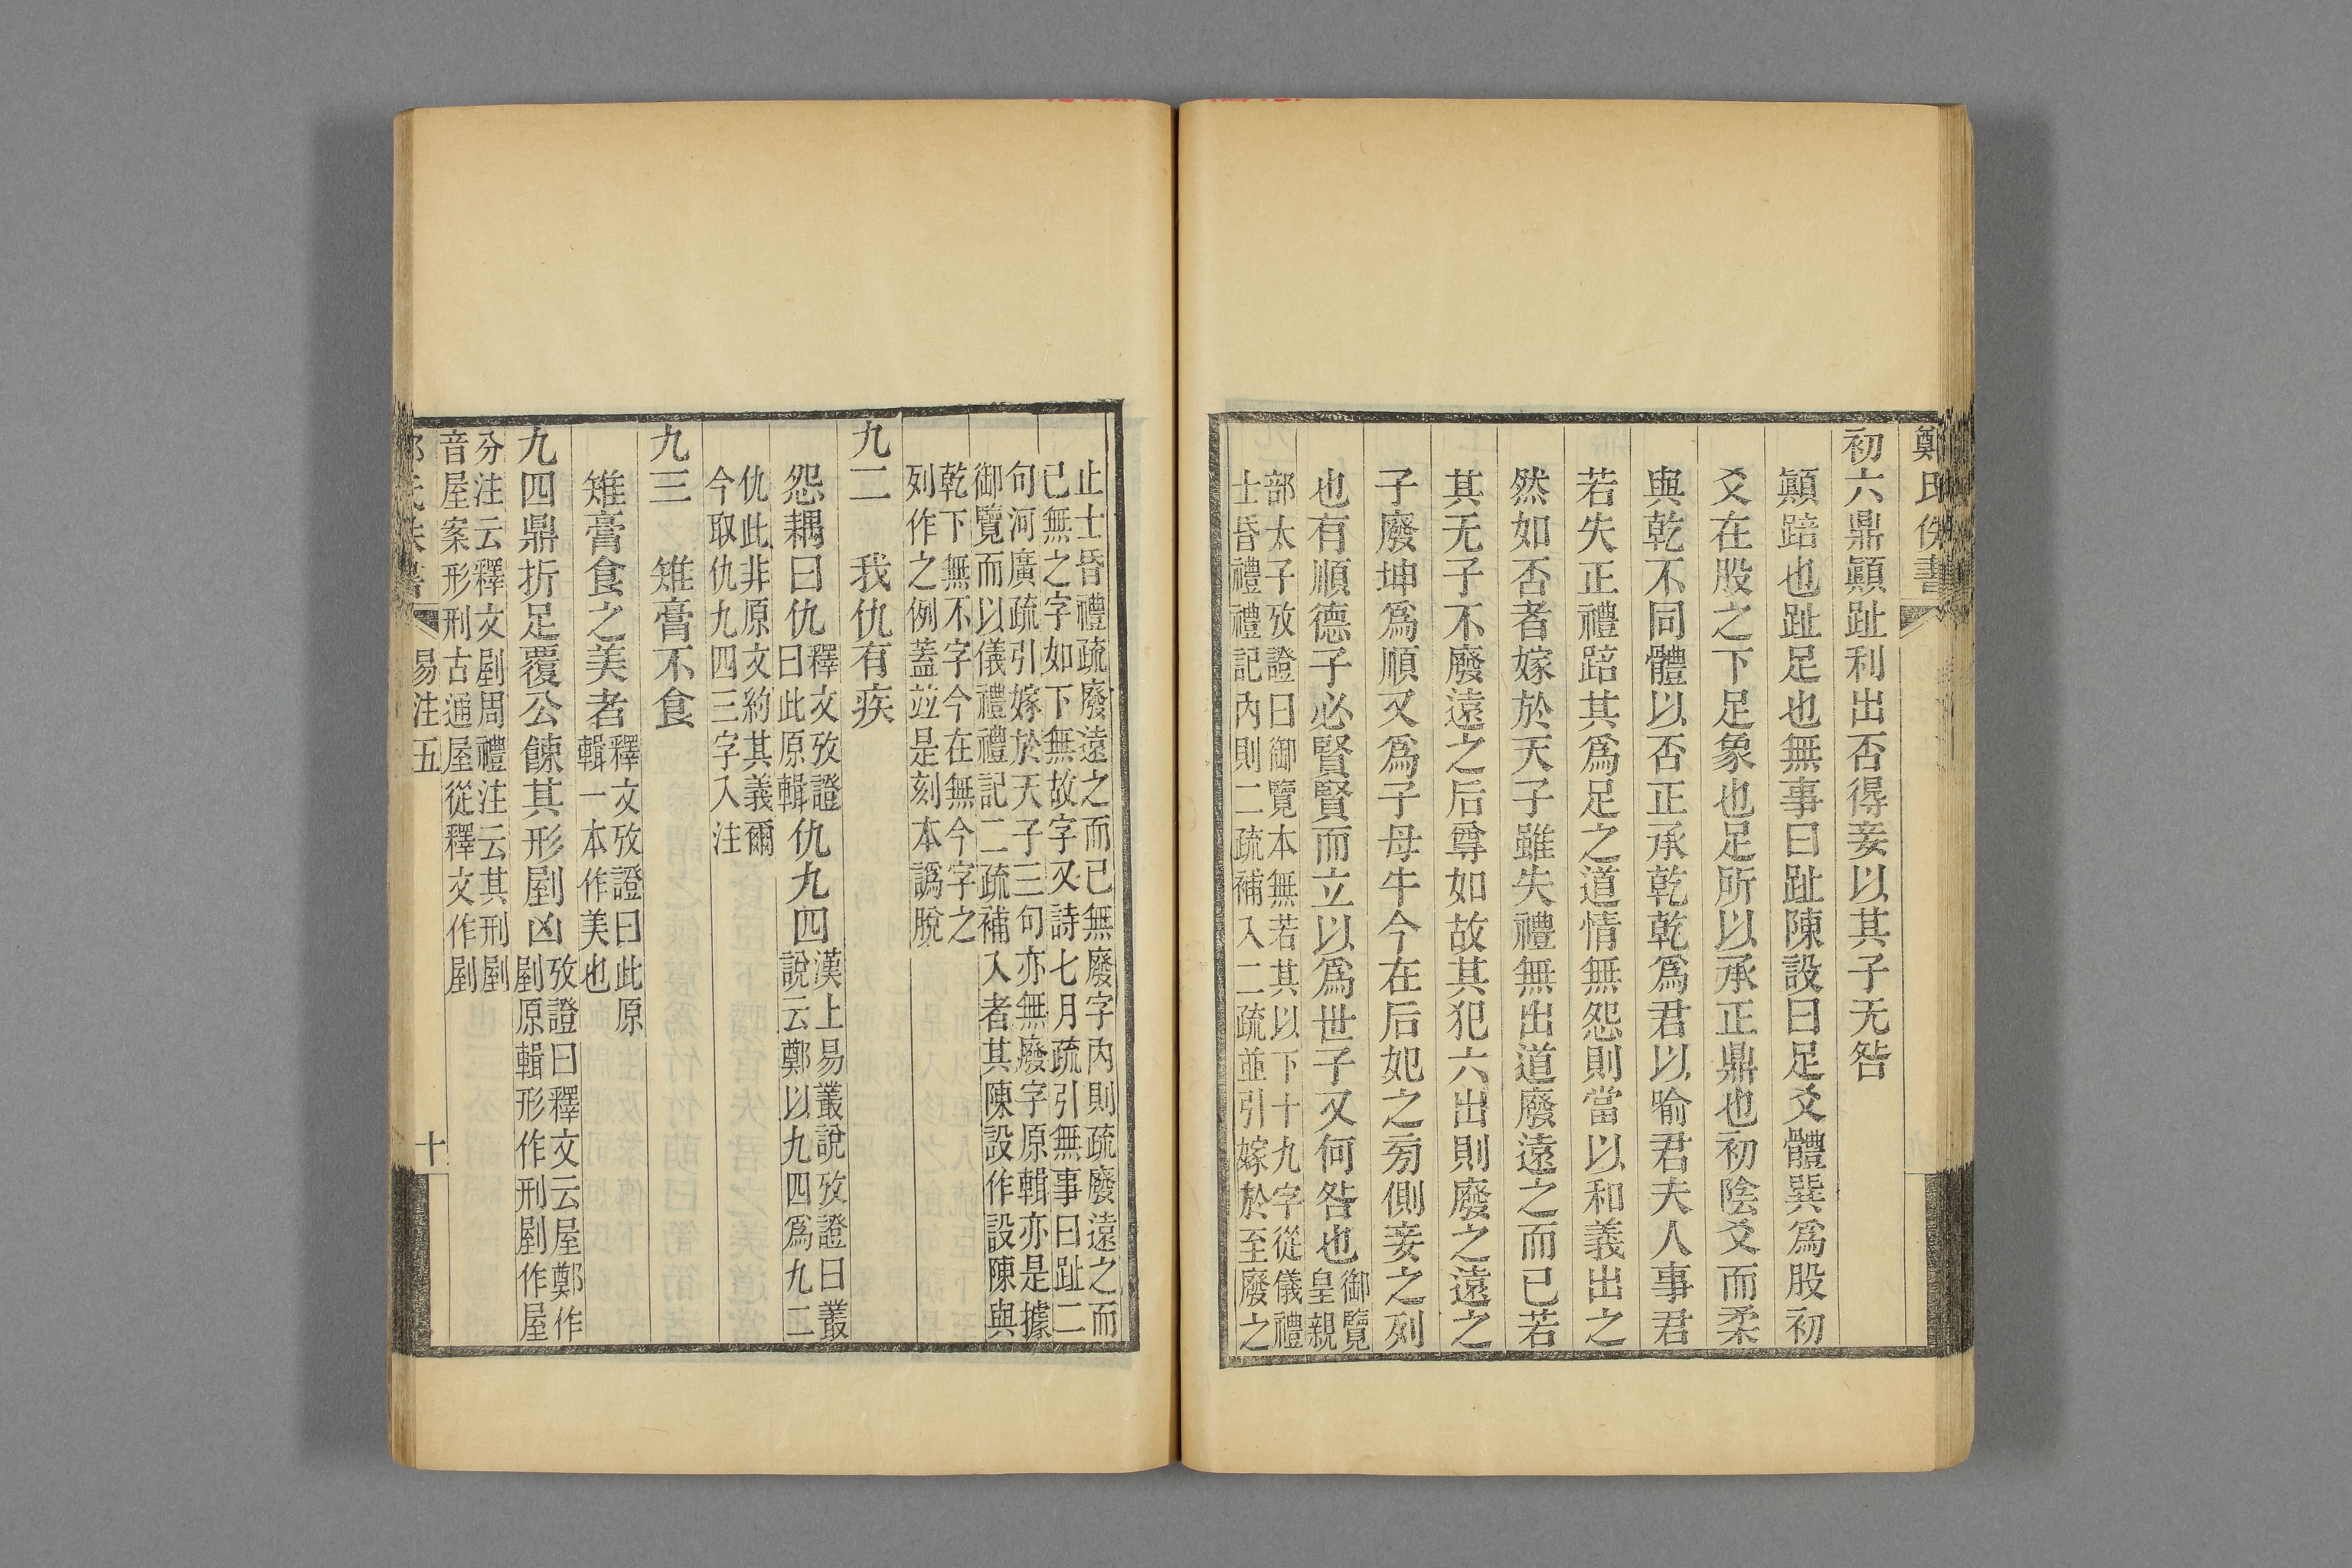 鄭氏佚書
初六鼎顚趾利出否得妾以其子无咎
顚踣也趾足也無事曰趾陳設曰足爻體巽爲股初
爻在股之下足象也足所以承正鼎也初陰爻而柔
與乾不同體以否正承乾乾爲君以喻君夫人事君
若失正禮踣其爲足之道情無怨則當以和義出之
然如否者嫁於天子雖失禮無出道廢遠之而已若
其无子不廢遠之后尊如故其犯六出則廢之遠之
子廢坤爲順又爲子母牛今在后妃之旁側妾之列
也有順德子必賢賢而立以爲世子又何咎也御覽皇親
部太子攷證曰御覽本無若其以下十九字從儀禮
士昏禮禮記內則二疏補入二疏並引嫁於至廢之
止士昏禮疏廢遠之而已無廢字內則疏廢遠之而
已無之字如下無故字又詩七月疏引無事曰趾二
句河廣疏引嫁於天子三句亦無廢字原輯亦是據
御覽而以儀禮禮記二疏補入者其陳設作設陳與
乾下無不字今在無今字之
列作之例蓋竝是刻本譌脫
九二　我仇有疾
怨耦曰仇釋文攷證曰此原輯仇九四漢上易叢說攷證曰叢說云鄭以九四爲九二
仇此非原文約其義爾
今取仇九四三字入注
九三　雉膏不食
雉膏食之美者釋文攷證曰此原輯一本作美也
九四鼎折足覆公餗其形剭凶攷證曰釋文云屋鄭作剭原輯形作刑剭作屋
分注云釋文剭周禮注云其刑剭
音屋案形刑古通屋從釋文作剭
易注五　十